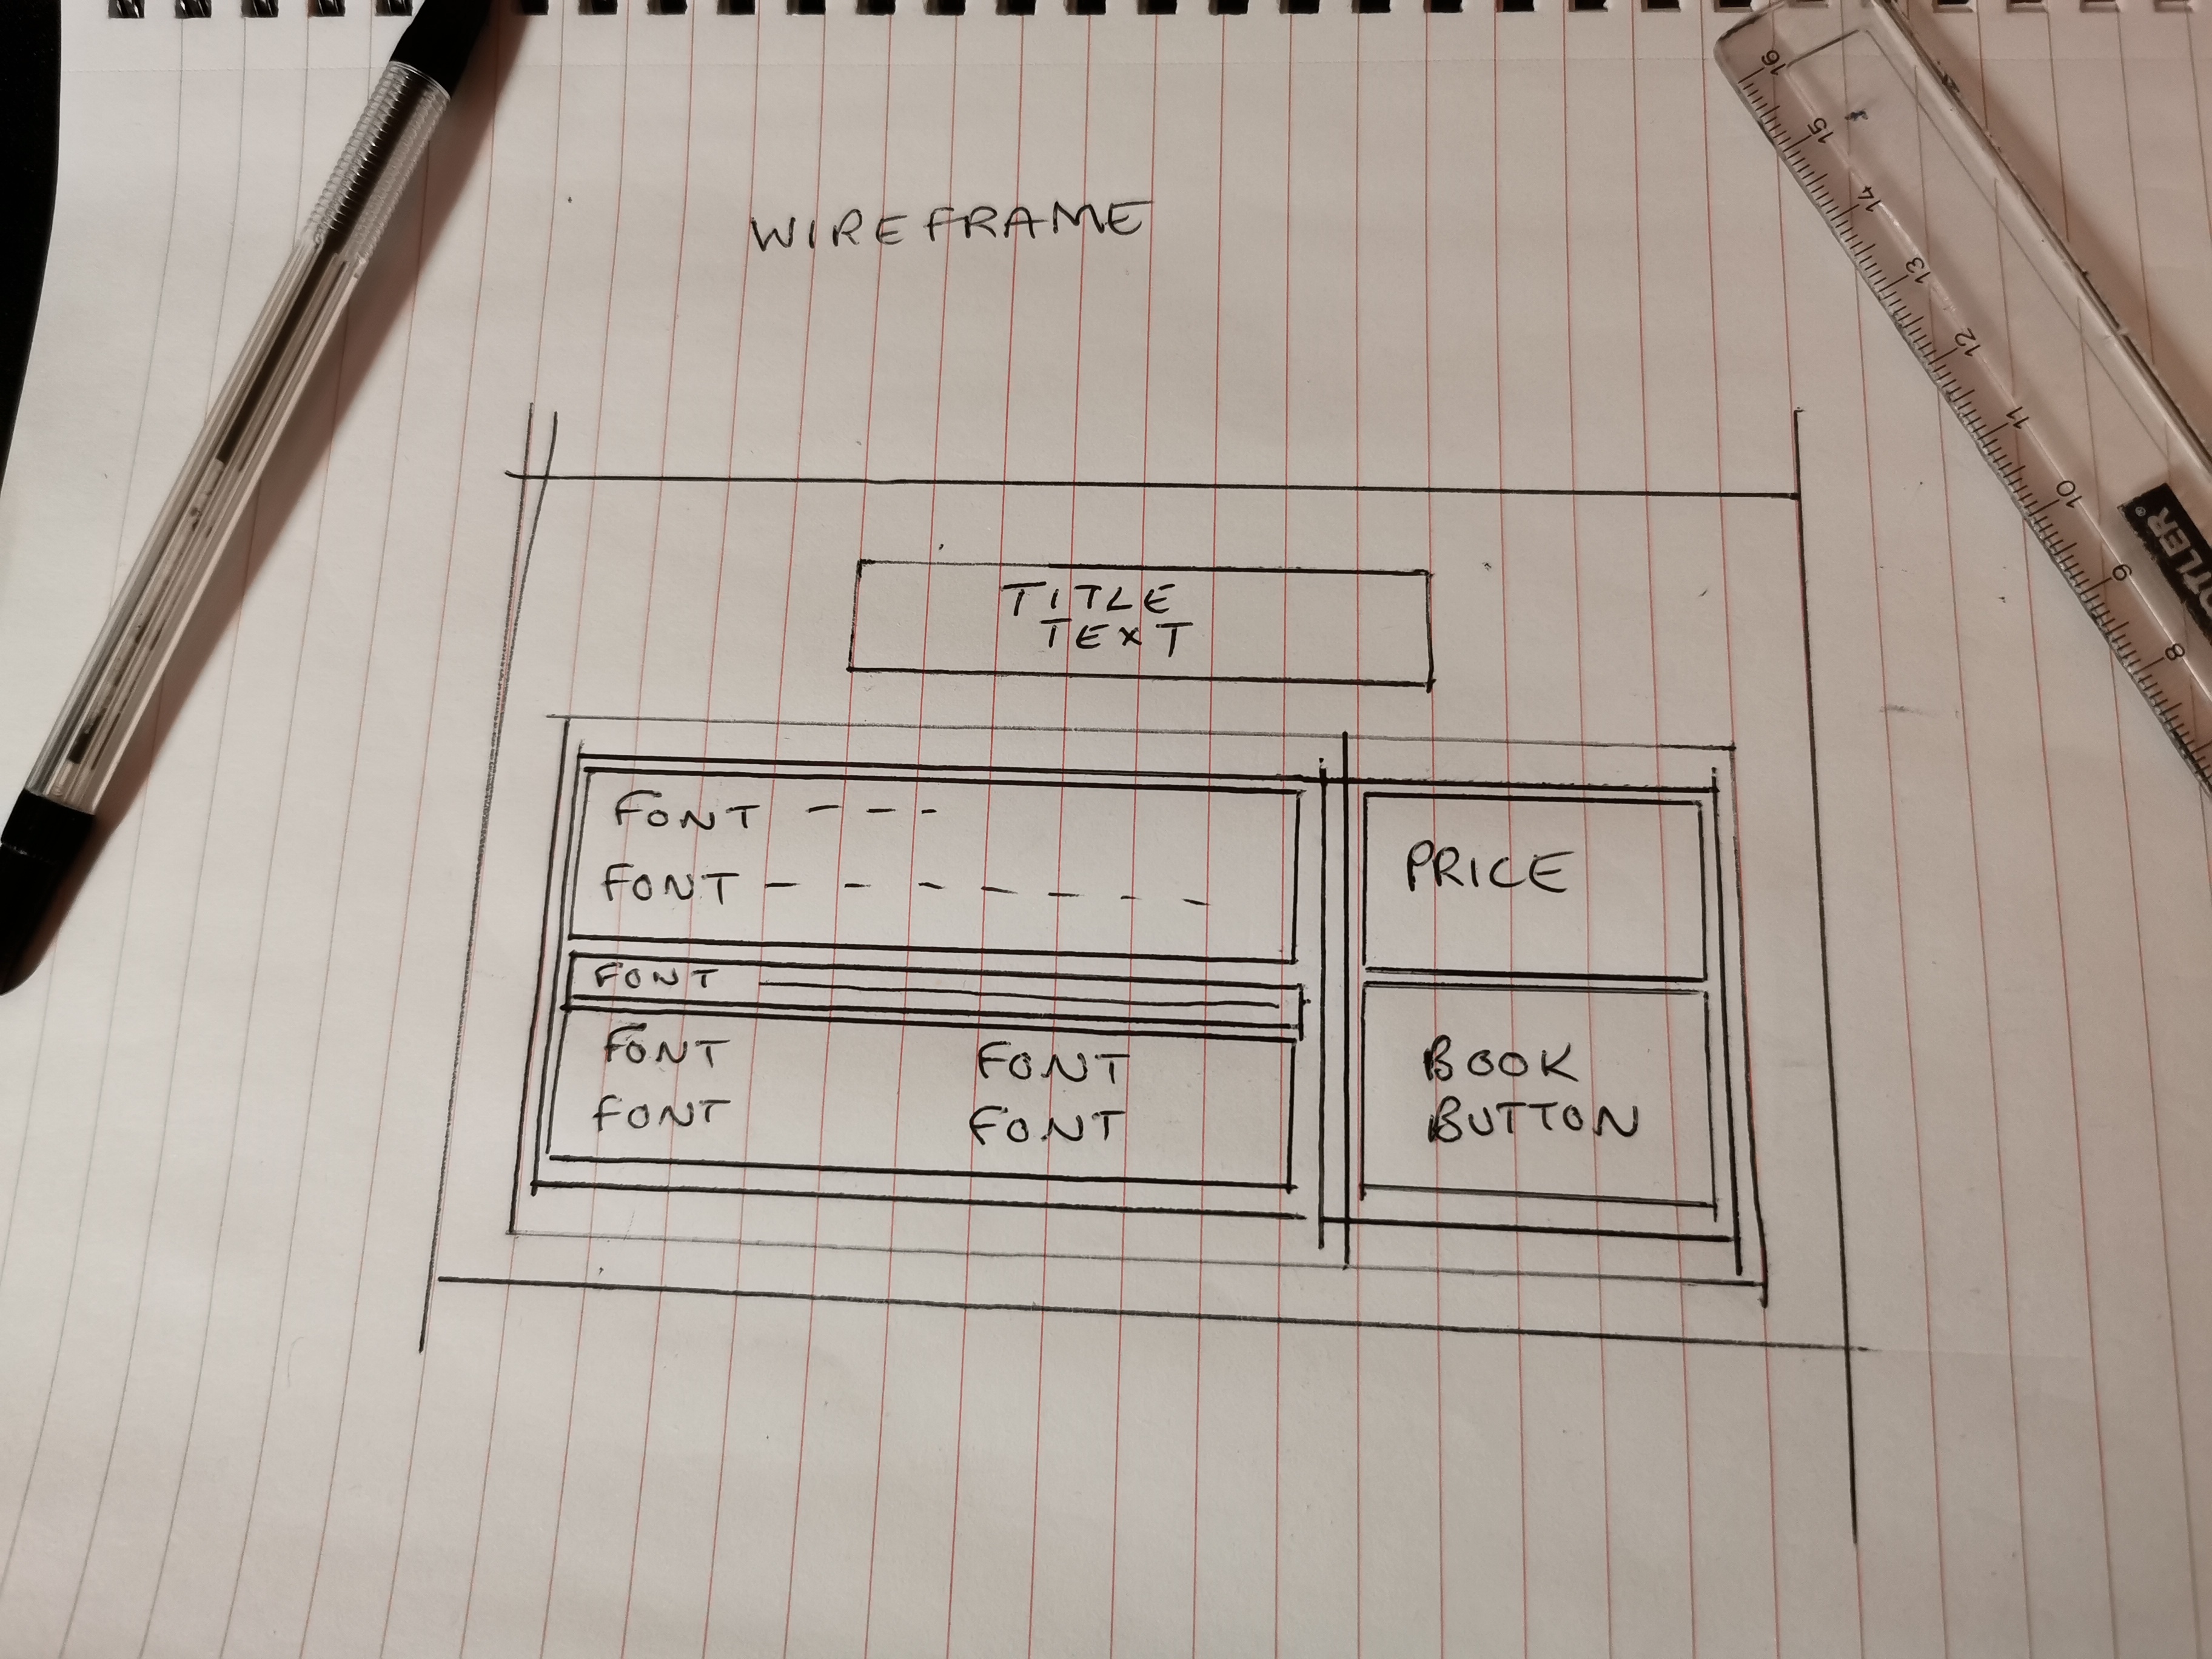 WIREFRAME
TITLE
TEXT
FONT - - -
FONT - - - - - - -
PRICE
FONT
FONT FONT
FONT FONT
BOOK
BUTTON
16
15
14
13
12
11
10
9
8